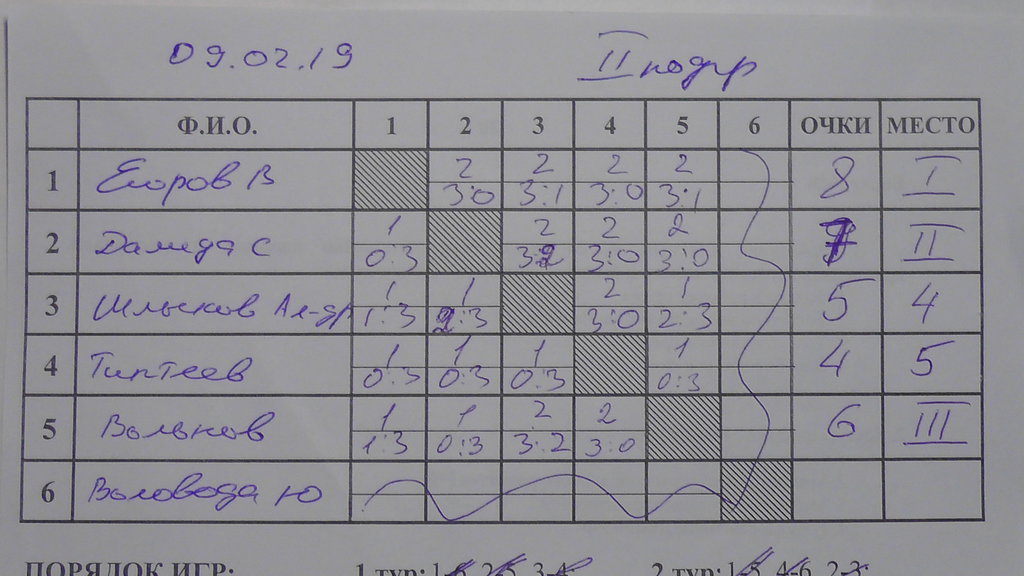 09.02.19 II подгр
Ф.И.О. 1 2 3 4 5 6 ОЧКИ МЕСТО
1 Егоров В 2 3:0 2 3:1 2 3:0 2 3:1 8 I
2 Далида С 1 0:3 2 3:2 2 3:0 2 3:0 7 II
3 Шлыков Ал-др 1 1:3 1 2:3 2 3:0 1 2:3 5 4
4 Типтеев 1 0:3 1 0:3 1 0:3 1 0:3 4 5
5 Вольнов 1 1:3 1 0:3 2 3:2 2 3:0 6 III
6 Воловода Ю
ПОРЯДОК ИГР: 1 тур: 1-6, 2-5, 3-4 2 тур: 1-5, 4-6, 2-3